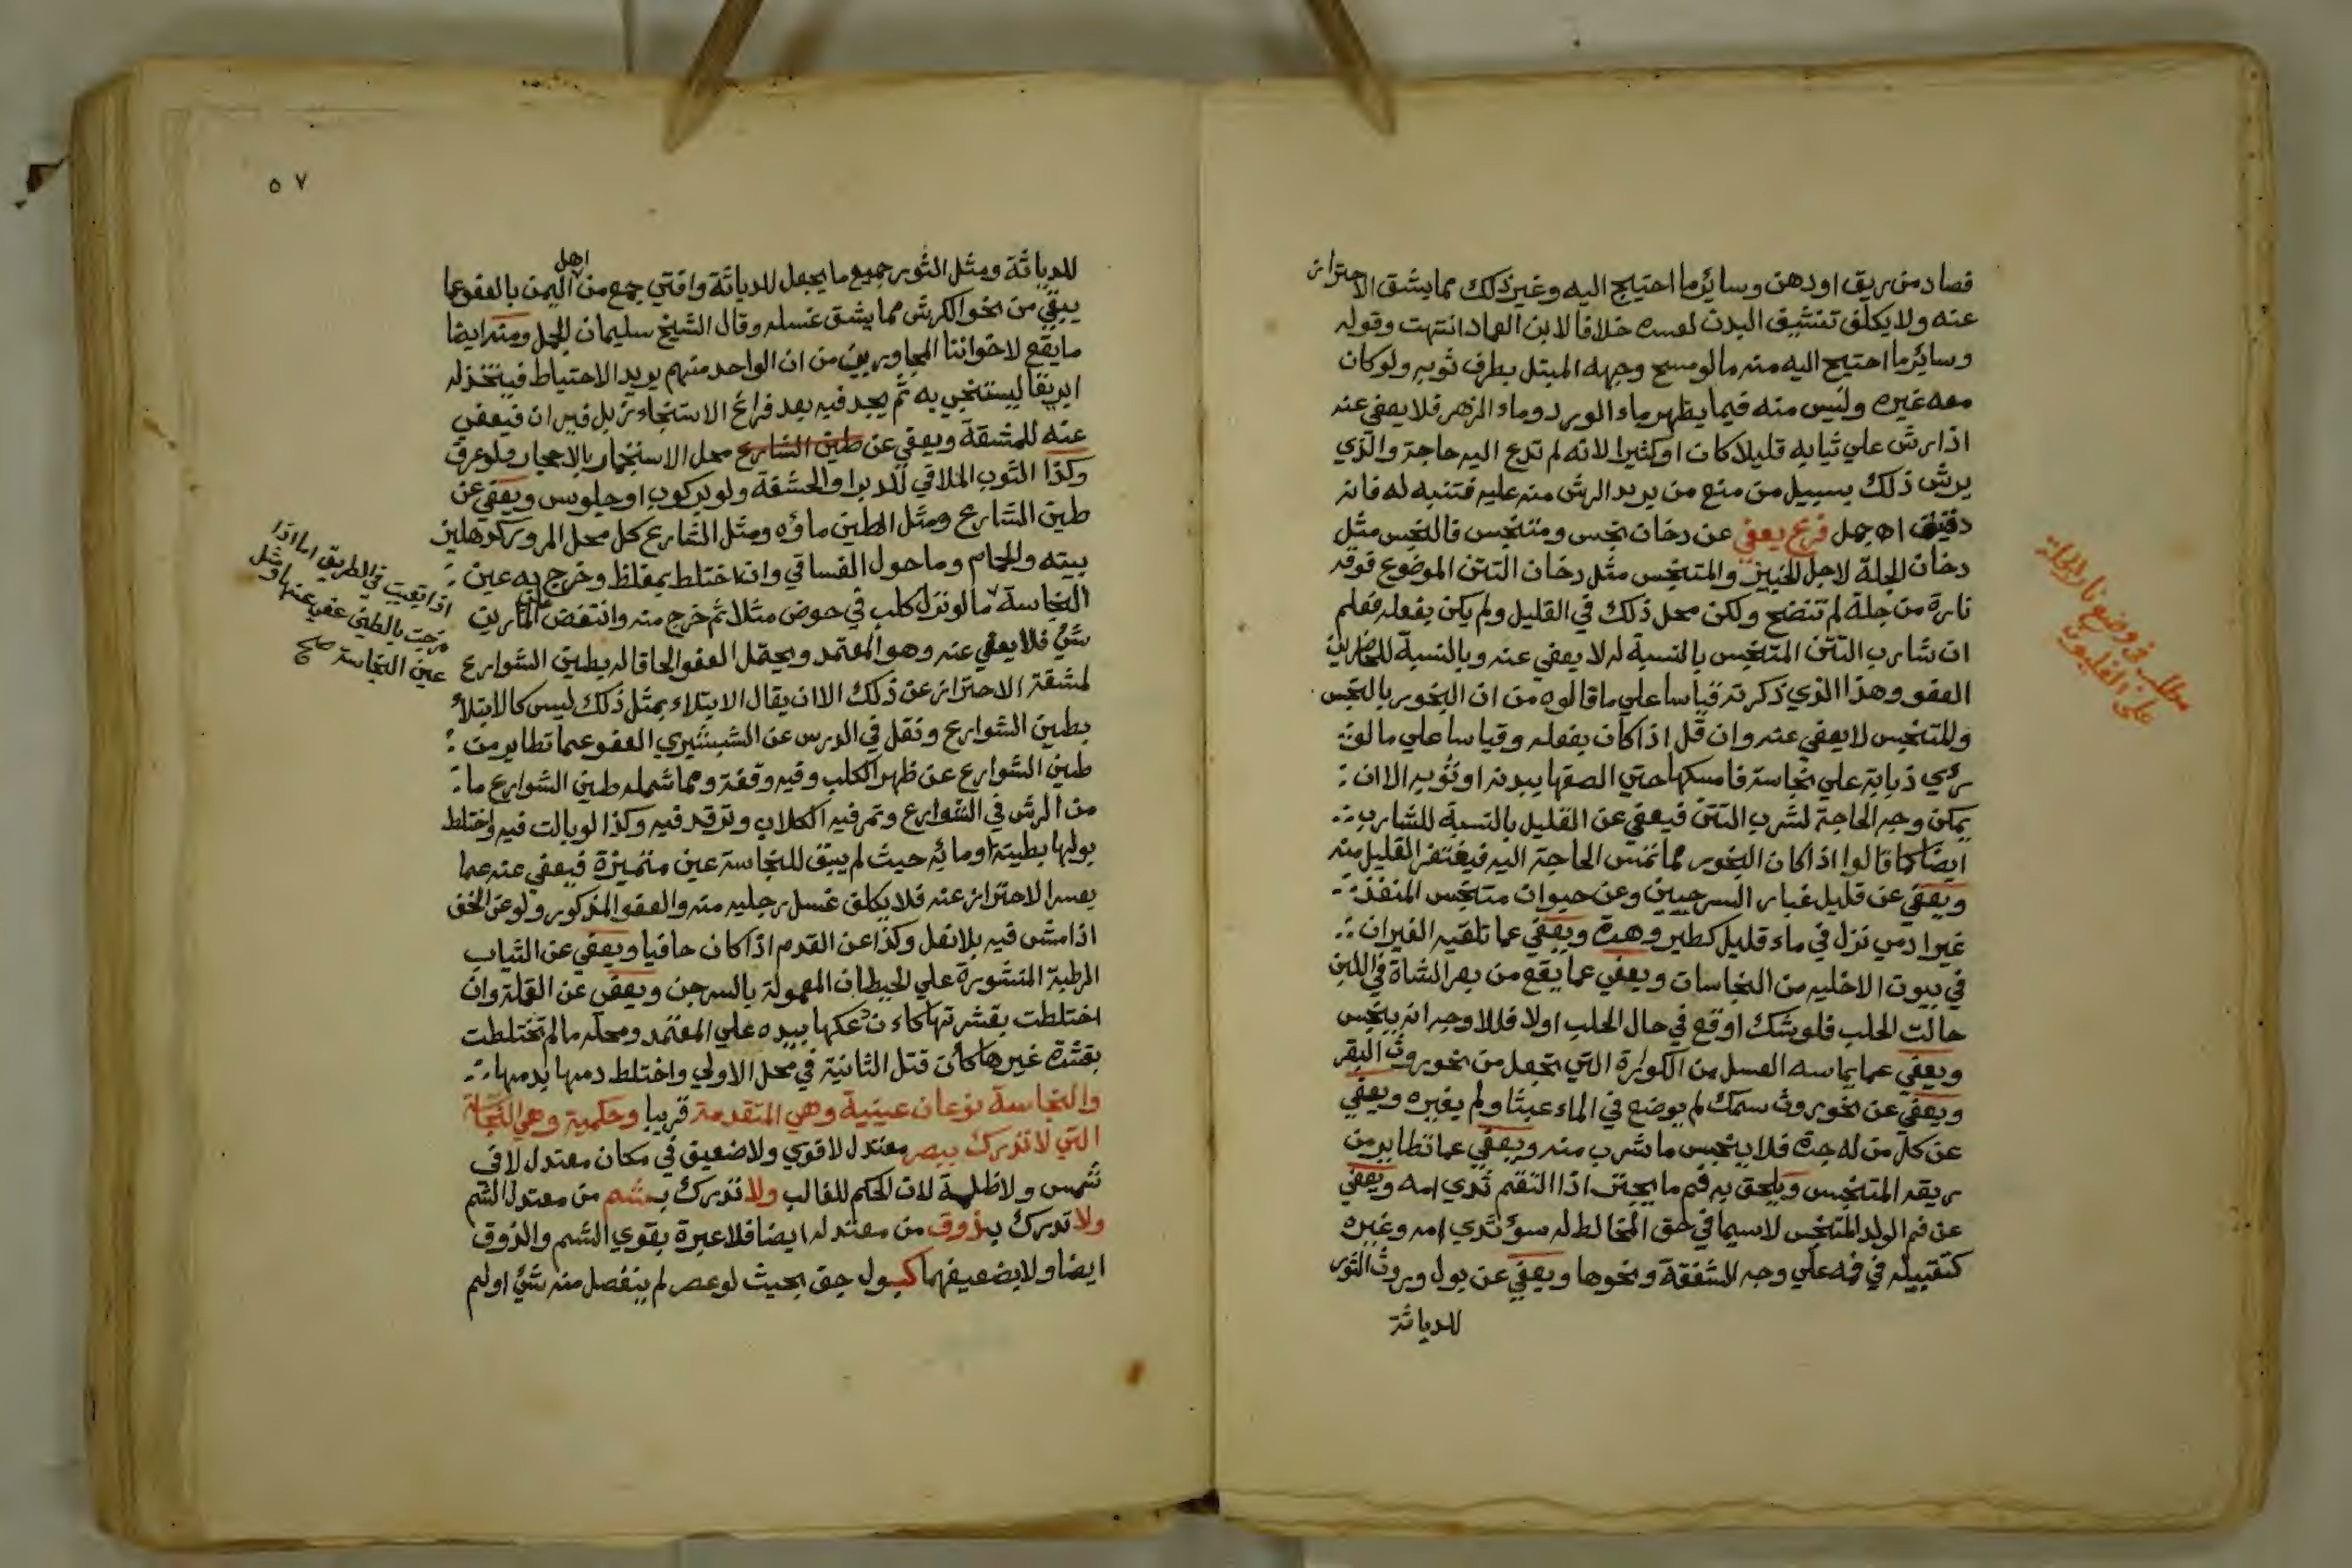 فصاد من ريق او دهن وسائر ما احتيج اليه وغير ذلك مما يشق الاحتراز
عنه ولا يكلف تنشيف البدن لعسره خلافا لابن العماد انتهت وقوله
وسائر ما احتيج اليه منه ما لو مسح وجهه المبتل بطرف ثوبه ولو كان
معه غيره وليس منه فيما يظهر ماء الورد وماء الزهر فلا يعفي عنه
اذا رش علي ثيابه قليلا كان او كثيرا لانه لم تدع اليه حاجة والذي
يرش ذلك بسبيل من منع من يريد الرش منه عليه فتنبه له فانه
دقيق اه جمل فرع يعفي عن دخان نجس ومتنجس فالنجس مثل
دخان الجلة لاجل الخبيز والمتنجس مثل دخان التتن الموضوع فوقه
نارة من جلة لم تنضج ولكن محل ذلك في القليل ولم يكن بفعله فعلم
ان شارب التتن المتنجس بالنسبة له لا يعفي عنه وبالنسبة للحاضرين
العفو وهذا الذي ذكرته قياسا علي ما قالوه من ان البخور بالنجس
والمتنجس لا يعفي عنه وان قل اذا كان بفعله وقياسا علي ما لو
رئي ذبابة علي نجاسة فامسكها حتي الصقها ببدنه او ثوبه الا ان
يمكن وجه الحاجة لشرب التتن فيعفي عن القليل بالنسبة للشارب
ايضا كما قالوا اذا كان البخور مما تمس الحاجة اليه فيغتفر القليل منه
ويعفي عن قليل غبار السرجين وعن حيوان متنجس المنفذ
غير ادمي نزل في ماء قليل كطير وهرة ويعفي عما تلقيه الفيران
في بيوت الاخليه من النجاسات ويعفي عما يقع من بعر الشاة في اللبن
حالت الحلب فلو شك اوقع في حال الحلب اولا فلا لا وجه انه ينجس
ويعفي عما يماسه العسل من الكوارة التي تجعل من نحو روث البقر
ويعفي عن نحو روث سمك لم يوضع في الماء عبثا ولم يغيره ويعفي
عن كل من له جرة فلا ينجس ما شرب منه ويعفي عما تطاير من
ريقه المتنجس ويلحق به فم ما يجتر اذا التقم ثدي امه ويعفي
عن فم الولد المتنجس لا سيما في حق المخالط له سوء ثدي امه وغيره
كتقبيله في فمه علي وجه الشفقة ونحوها ويعفي عن بول وروث الثور
للدياثة
مطلب في وضع نار الجلة
علي القليون
٥٧
للدياثة ومثل الثور جميع ما يجعل للدياثة وافتي جمع من اهل اليمن بالعفو عما
يبقي من نحو الكرش مما يشق غسله وقال الشيخ سليمان الجمل ومنه ايضا
ما يقع لاخواننا المجاورين من ان الواحد منهم يريد الاحتياط فيتخذ له
ابريقا ليستنجي به ثم يجد فيه بعد فراغ الاستنجاء زبل فيران فيعفي
عنه للمشقة ويعفي عن طين الشارع محل الاستنجمار بالاحجار ولو عرق
وكذا الثوب الملاقي للدبر او الحشفة ولو بركوب او جلوس ويعفي عن
طين الشارع ومثل الطين ماؤه ومثل الشارع كل محل المرور كدهليز
بيته والحمام وما حول الفساقي وان اختلط بمغلظ وخرج به عين
النجاسة ما لو نزل كلب في حوض مثلا ثم خرج منه وانتفض علي المارين
شئ فلا يعفي عنه وهو المعتمد ويحتمل العفو الحاقا له بطين الشوارع
لمشقة الاحتراز عن ذلك الا ان يقال الابتلاء بمثل ذلك ليس كالابتلأ
بطين الشوارع ونقل في الدرس عن الشبشيري العفو عما تطاير من
طين الشوارع عن ظهر الكلب وفيه وقفة ومما شمله طين الشوارع ما
من الرش في الشوارع وتمر فيه الكلاب وترقد فيه وكذا لو بالت فيه واختلط
بولها بطينه او مائه حيث لم يبق للنجاسة عين متميزة فيعفي عنه عما
يعسر الاحتراز عنه فلا يكلف غسل رجليه منه والعفو المذكور ولو عن الخف
اذا مشي فيه بلا نعل وكذا عن القدم اذا كان حافيا ويعفي عن الثياب
الرطبة المنشورة علي الحيطان المعمولة بالسرجن ويعفي عن القملة وان
اختلطت بقشرتها كاءن دعكها بيده علي المعتمد ومحله ما لم تختلطت
بقشرة غيرها كأن قتل الثانية في محل الاولي واختلط دمها بدمها
والنجاسة نوعان عينية وهي المتقدمة قريبا وحكمية وهي النجاسة
التي لا تدرك ببصر معتدل لا قوي ولا ضعيف في مكان معتدل لا في
شمس ولا ظلمة لان الحكم للغالب ولا تدرك بشم من معتدل الشم
ولا تدرك بذوق من معتدله ايضا فلا عبرة بقوي الشم والذوق
ايضا ولا بضعيفهما كبول جف بحيث لو عصر لم ينفصل منه شئ او لم
اذا بقيت في الطريق اما اذا
مزجت بالطين عفي عنها ومثل
عين النجاسة صح